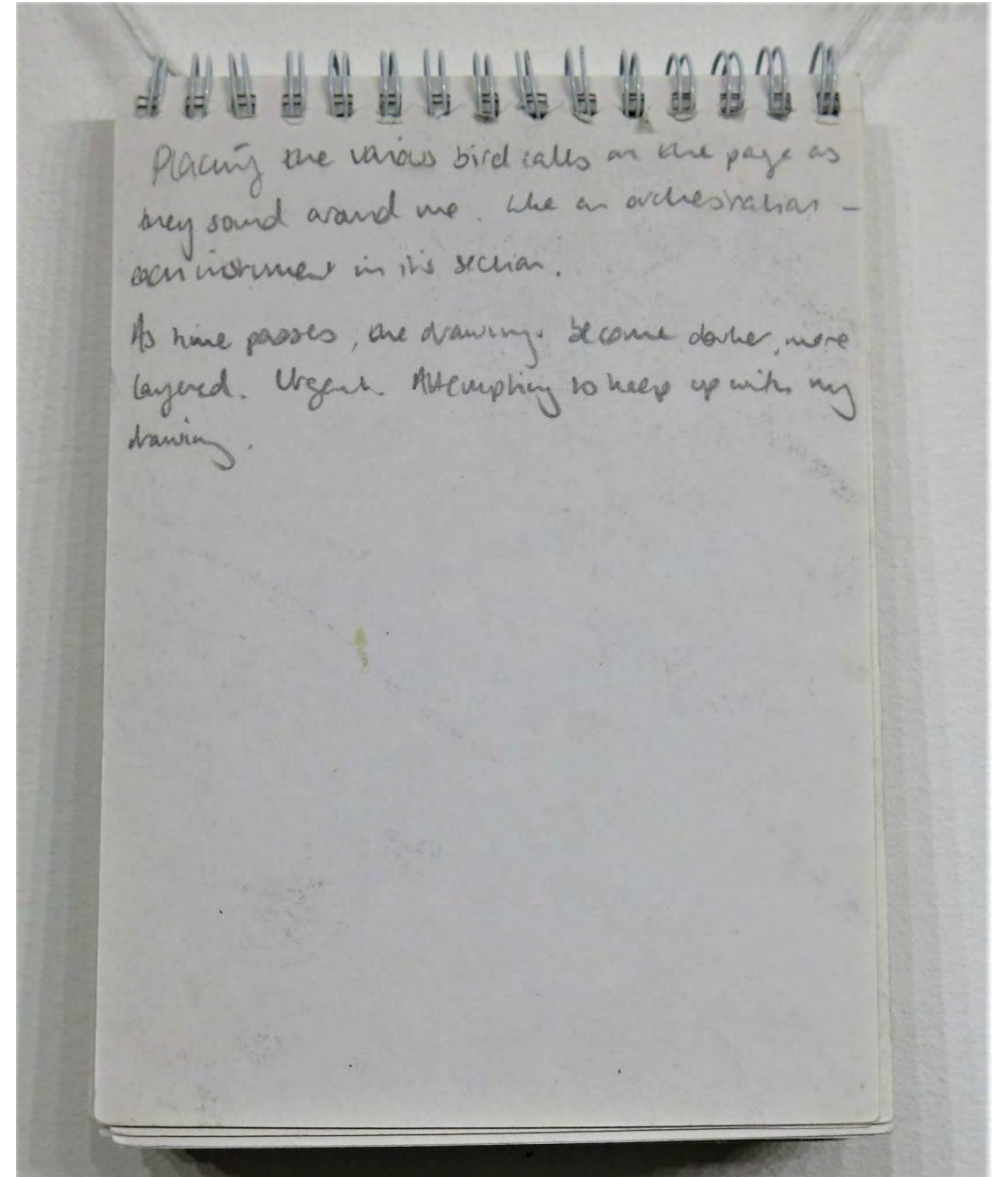 Placing the various bird calls on the page as
they sound around me. Like an orchestration –
each instrument in its section.
As time passes, the drawings become darker, more
layered. Urgent. Attempting to keep up with my
drawing.